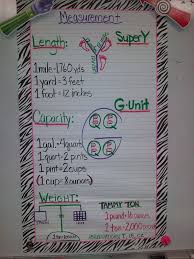 Measurement
Length: SuperY
1 mile = 1,760 yds
1 yard = 3 feet
1 foot = 12 inches
G-Unit
Capacity:
1 gal. = 4 quarts
1 quart = 2 pints
1 pint = 2 cups
(1 cup = 8 ounces)
Q Q
Q Q
Weight: TAMMY TON
1 pound = 16 ounces
1 ton = 2,000 pounds